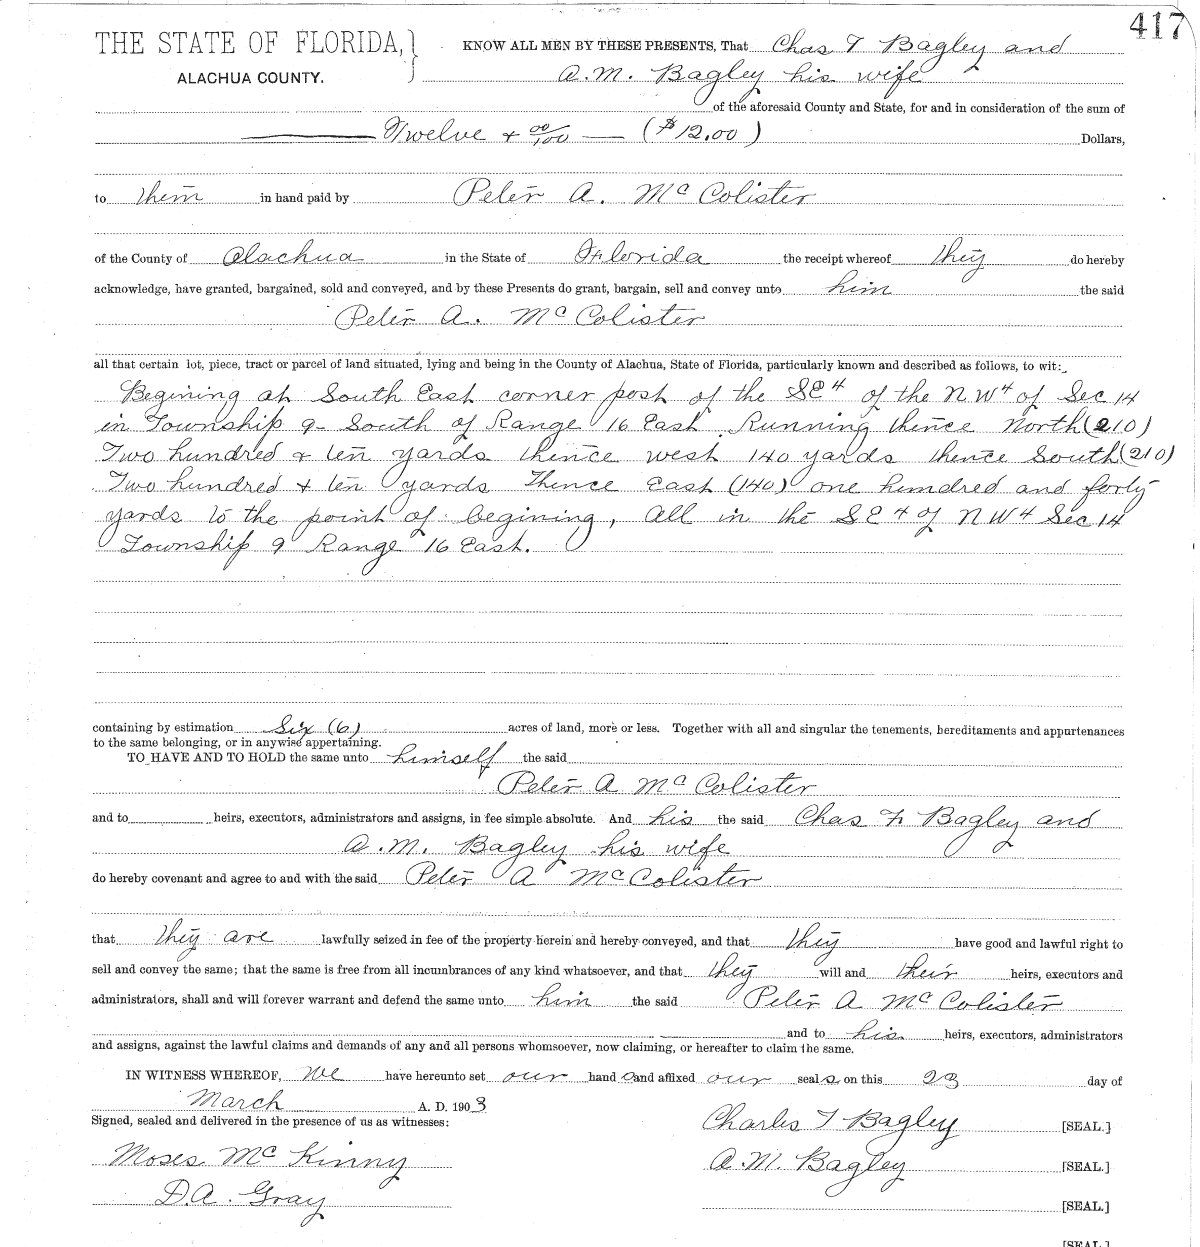 417
THE STATE OF FLORIDA, } KNOW ALL MEN BY THESE PRESENTS, That Chas F Bagley and
ALACHUA COUNTY. A.M. Bagley his wife
of the aforesaid County and State, for and in consideration of the sum of
Twelve + 00/100 — ($12.00) Dollars,
to them in hand paid by Peter A. McColister
of the County of Alachua in the State of Florida the receipt whereof they do hereby
acknowledge, have granted, bargained, sold and conveyed, and by these Presents do grant, bargain, sell and convey unto him the said
Peter A. McColister
all that certain lot, piece, tract or parcel of land situated, lying and being in the County of Alachua, State of Florida, particularly known and described as follows, to wit:
Begining at South East corner post of the SE4 of the NW4 of Sec 14
in Township 9- South of Range 16 East. Running thence North (210)
Two hundred + ten yards thence west 140 yards thence South (210)
Two hundred + ten yards Thence East (140) one hundred and forty
yards to the point of begining, all in the SE4 of NW4 Sec 14
Township 9 Range 16 East.
containing by estimation Six (6) acres of land, more or less. Together with all and singular the tenements, hereditaments and appurtenances
to the same belonging, or in anywise appertaining.
TO HAVE AND TO HOLD the same unto himself the said
Peter A McColister
and to heirs, executors, administrators and assigns, in fee simple absolute. And his the said Chas F Bagley and
A.M. Bagley his wife
do hereby covenant and agree to and with the said Peter A McColister
that they are lawfully seized in fee of the property herein and hereby conveyed, and that they have good and lawful right to
sell and convey the same; that the same is free from all incumbrances of any kind whatsoever, and that they will and their heirs, executors and
administrators, shall and will forever warrant and defend the same unto him the said Peter A McColister
and to his heirs, executors, administrators
and assigns, against the lawful claims and demands of any and all persons whomsoever, now claiming, or hereafter to claim the same.
IN WITNESS WHEREOF, We have hereunto set our hands and affixed our seals on this 23 day of
March A. D. 1903
Signed, sealed and delivered in the presence of us as witnesses:
Charles F Bagley [SEAL.]
Moses McKinny A.M. Bagley [SEAL.]
D.A. Gray [SEAL.]
[SEAL.]